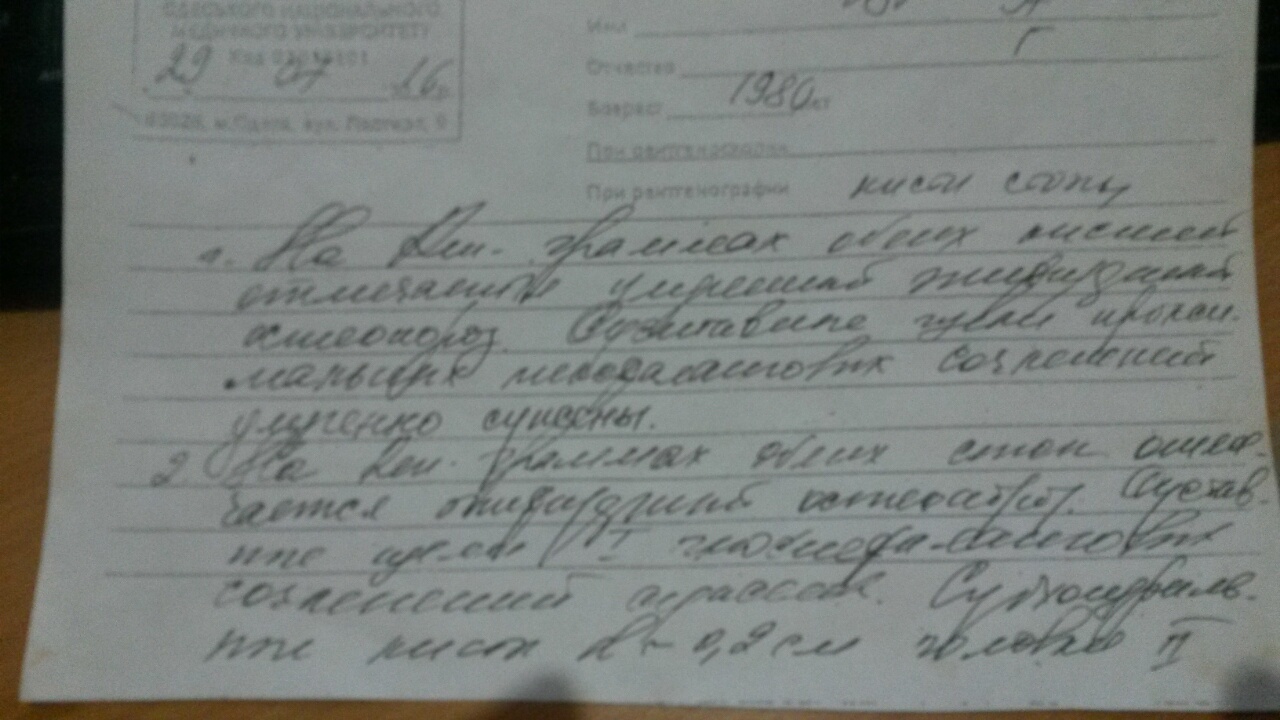 ОДЕСЬКОГО НАЦІОНАЛЬНОГО
МЕДИЧНОГО УНІВЕРСИТЕТУ
Код
29 07 16
м.Одеса, вул. 9
Имя
Отчество Г
Возраст 1980 лет
При рентгеноскопии
При рентгенографии кисти стопы
1. На Ren. граммах обеих кистей
отмечается умеренный диффузный
остеопороз. Суставные щели прокси-
мальных межфаланговых сочленений
умеренно сужены.
2. На Ren. граммах обеих стоп отме-
чается диффузный Сустав-
ные щели I плюснефаланговых
сочленений Субхондраль-
ные кисты d - 0,2 см головки II